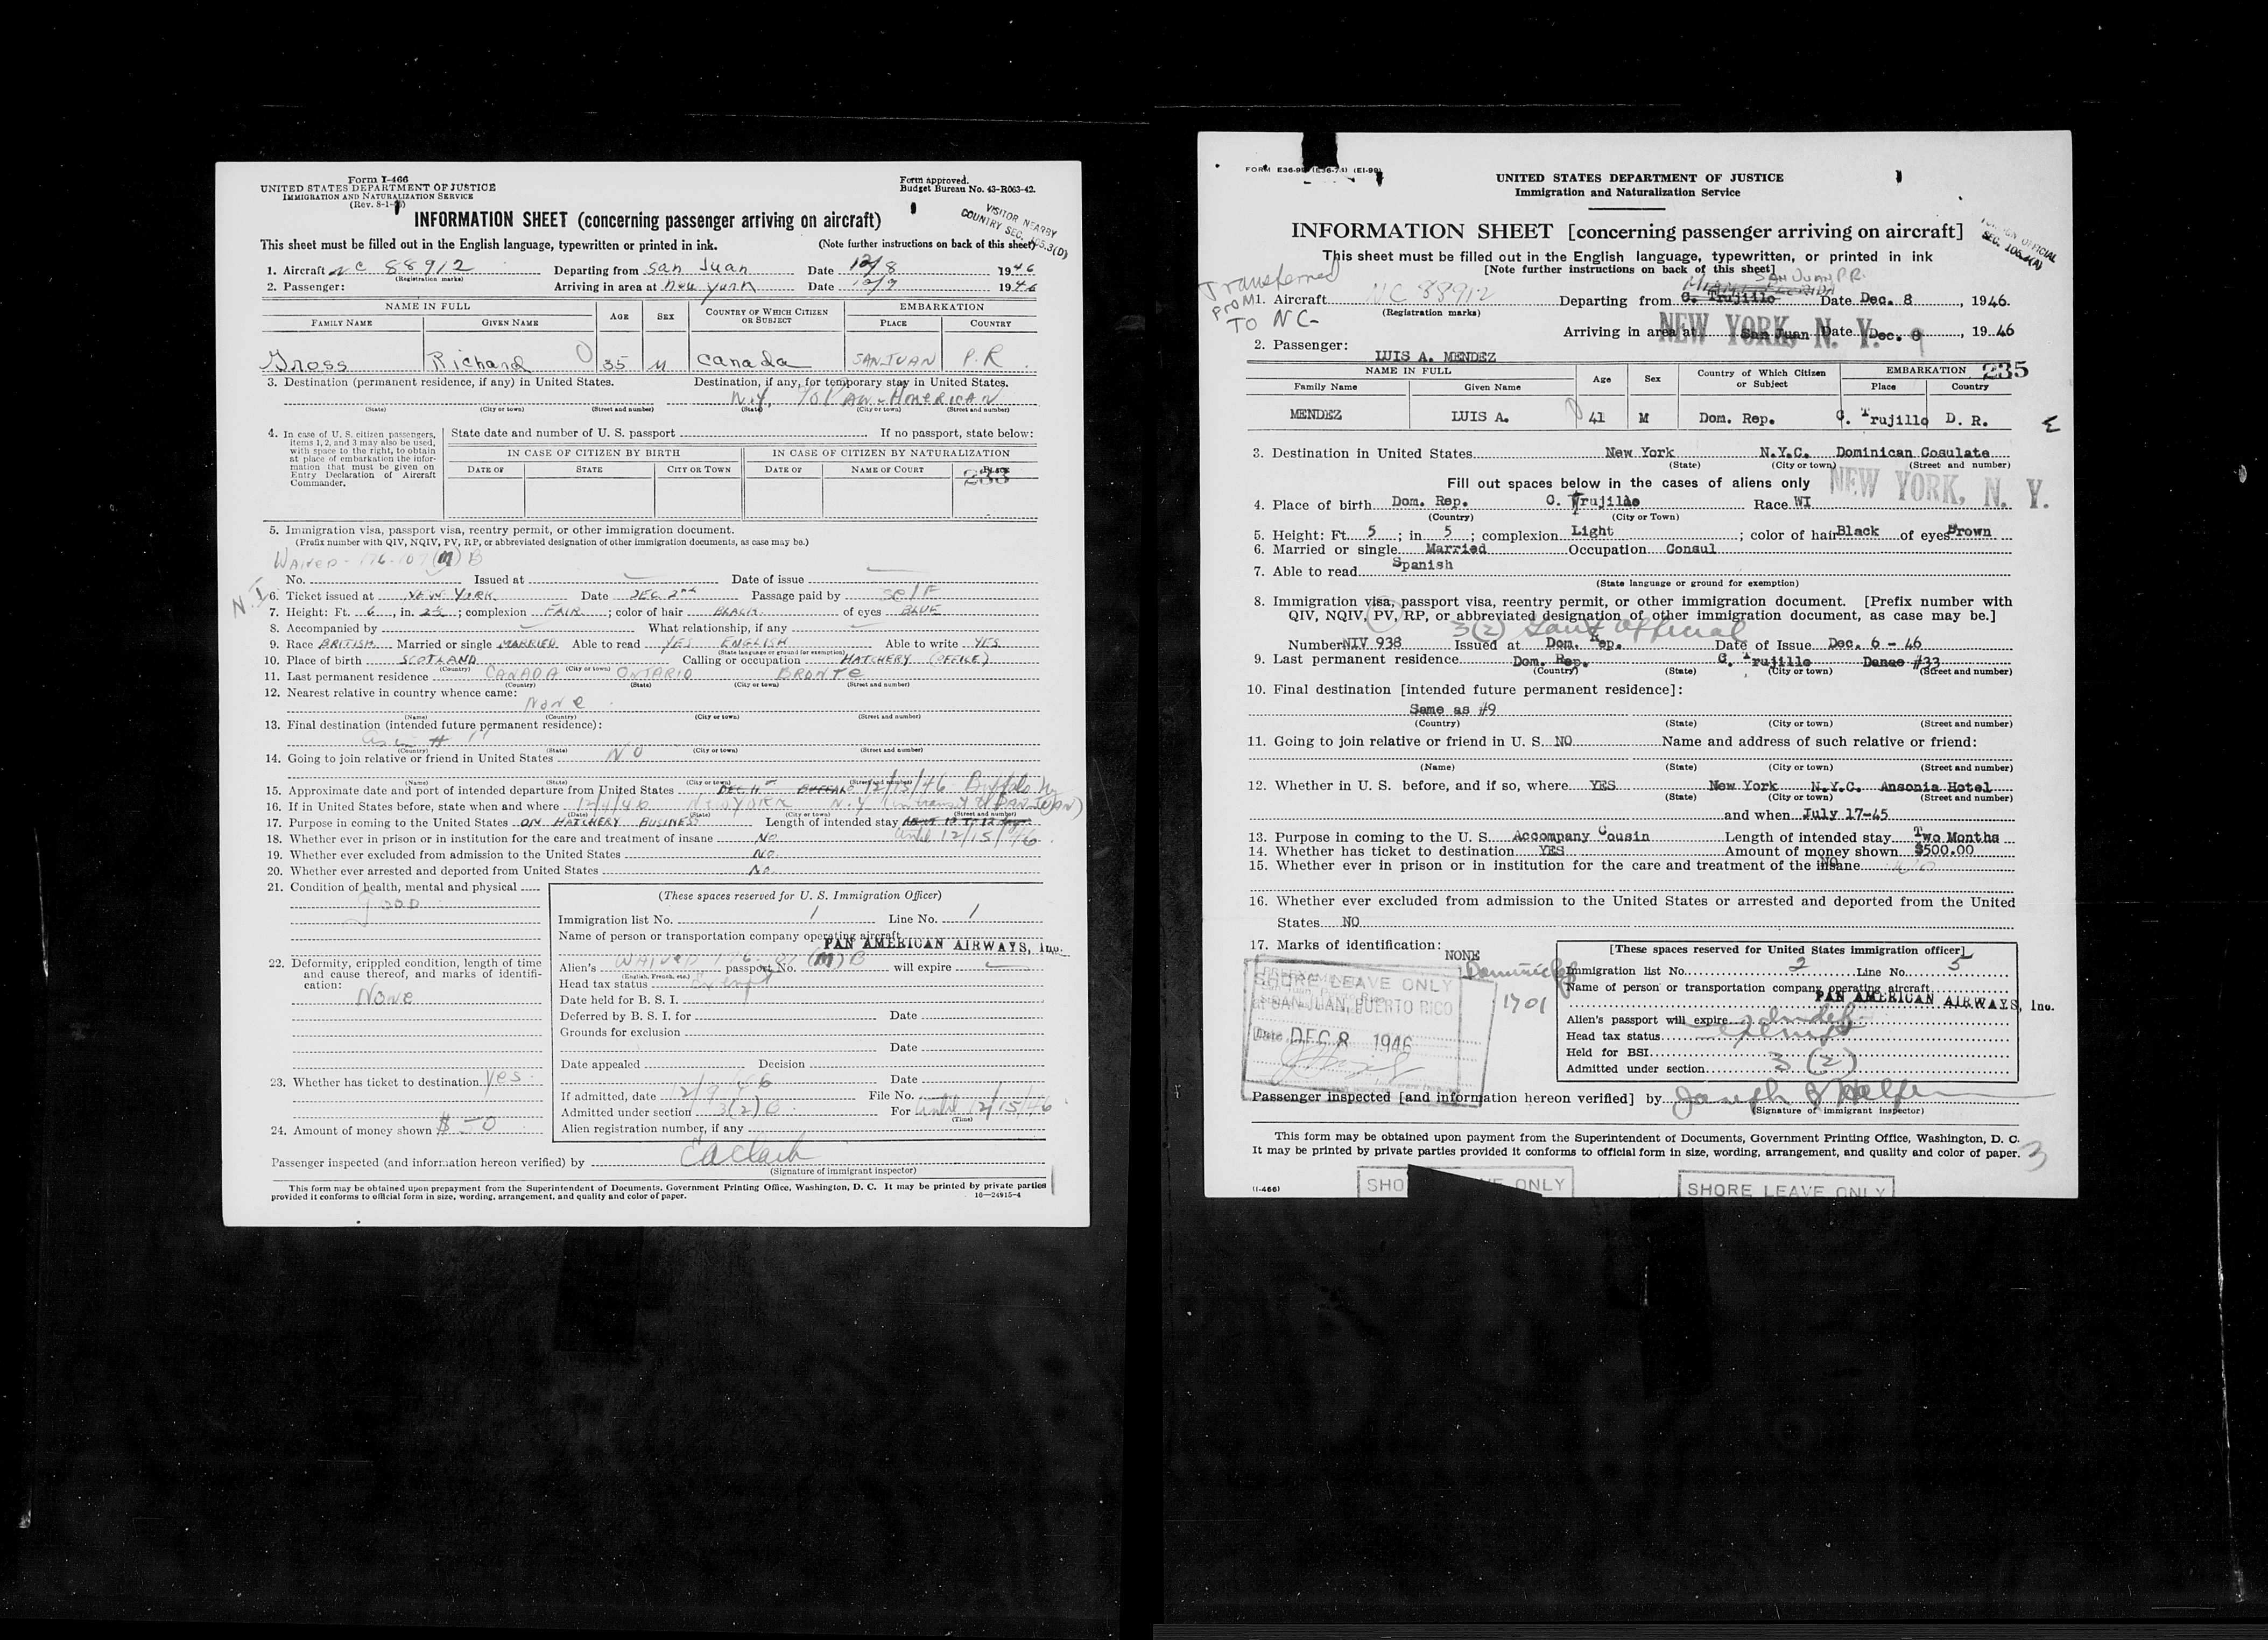 Form I-466
UNITED STATES DEPARTMENT OF JUSTICE
IMMIGRATION AND NATURALIZATION SERVICE
(Rev. 8-1-
Form approved.
Budget Bureau No. 43-R063-42.
INFORMATION SHEET (concerning passenger arriving on aircraft)
VISITOR NEARBY
COUNTRY SEC. 105.3(D)
This sheet must be filled out in the English language, typewritten or printed in ink. (Note further instructions on back of this sheet)
1. Aircraft NC 88912 Departing from San Juan Date 12/8 1946
(Registration marks)
2. Passenger: Arriving in area at New York Date 12/9 1946
NAME IN FULL AGE SEX COUNTRY OF WHICH CITIZEN OR SUBJECT EMBARKATION
FAMILY NAME GIVEN NAME PLACE COUNTRY
Gross Richard 35 M Canada SAN JUAN P.R.
3. Destination (permanent residence, if any) in United States. Destination, if any, for temporary stay in United States.
N.Y.
(State) (City or town) (Street and number) (State) (City or town) (Street and number)
4. In case of U. S. citizen passengers, items 1, 2, and 3 may also be used, with space to the right, to obtain at place of embarkation the information that must be given on Entry Declaration of Aircraft Commander.
State date and number of U. S. passport If no passport, state below:
IN CASE OF CITIZEN BY BIRTH IN CASE OF CITIZEN BY NATURALIZATION
DATE OF STATE CITY OR TOWN DATE OF NAME OF COURT PLACE
5. Immigration visa, passport visa, reentry permit, or other immigration document.
(Prefix number with QIV, NQIV, PV, RP, or abbreviated designation of other immigration documents, as case may be.)
WAIVED - 176.107(M)B
No. Issued at Date of issue
N.I.
6. Ticket issued at NEW YORK Date DEC 2nd Passage paid by self
7. Height: Ft. 6, in. 2½; complexion FAIR; color of hair BLACK of eyes BLUE
8. Accompanied by What relationship, if any
9. Race BRITISH Married or single MARRIED Able to read YES ENGLISH Able to write YES
(State language or ground for exemption)
10. Place of birth SCOTLAND Calling or occupation HATCHERY (OFFICE)
(Country) (City or town)
11. Last permanent residence CANADA ONTARIO BRONTE
(Country) (State) (City or town) (Street and number)
12. Nearest relative in country whence came:
None
(Name) (Country) (City or town) (Street and number)
13. Final destination (intended future permanent residence):
as in # 11
(Country) (State) (City or town) (Street and number)
14. Going to join relative or friend in United States NO
(Name) (State) (City or town) (Street and number)
15. Approximate date and port of intended departure from United States DEC 11th BUFFALO 12/15/46 Buffalo NY
16. If in United States before, state when and where 12/4/46 NEW YORK N.Y. (in transit to SAN JUAN)
(Date) (State) (City or town) (Street and number)
17. Purpose in coming to the United States ON HATCHERY BUSINESS Length of intended stay
until 12/15/46.
18. Whether ever in prison or in institution for the care and treatment of insane NO
19. Whether ever excluded from admission to the United States NO.
20. Whether ever arrested and deported from United States NO
21. Condition of health, mental and physical
GOOD
22. Deformity, crippled condition, length of time and cause thereof, and marks of identification:
None
23. Whether has ticket to destination yes.
24. Amount of money shown $50
(These spaces reserved for U. S. Immigration Officer)
Immigration list No. 1 Line No. 1
Name of person or transportation company operating aircraft
PAN AMERICAN AIRWAYS, Inc.
Alien's WAIVED 176.107(M)B passport No. will expire
(English, French, etc.)
Head tax status Exempt
Date held for B. S. I.
Deferred by B. S. I. for Date
Grounds for exclusion
Date
Date appealed Decision
Date
If admitted, date 12/9/46 File No.
Admitted under section 3(2)B For until 12/15/46
(Time)
Alien registration number, if any
Passenger inspected (and information hereon verified) by EAClark
(Signature of immigrant inspector)
This form may be obtained upon prepayment from the Superintendent of Documents, Government Printing Office, Washington, D. C. It may be printed by private parties
provided it conforms to official form in size, wording, arrangement, and quality and color of paper. 16—24915-4
UNITED STATES DEPARTMENT OF JUSTICE
Immigration and Naturalization Service
INFORMATION SHEET [concerning passenger arriving on aircraft]
FOREIGN OFFICIAL
SEC. 105.3(A)
This sheet must be filled out in the English language, typewritten, or printed in ink
[Note further instructions on back of this sheet]
Transferred
FROM
TO NC-
SAN JUAN P.R.
1. Aircraft NC 88912 Departing from C. Trujillo Date Dec. 8, 1946.
(Registration marks)
Arriving in area at San Juan Date Dec. 8, 1946
NEW YORK, N. Y. 9
2. Passenger: LUIS A. MENDEZ
NAME IN FULL Age Sex Country of Which Citizen or Subject EMBARKATION 235
Family Name Given Name Place Country
MENDEZ LUIS A. 41 M Dom. Rep. C. Trujillo D. R.
3. Destination in United States New York N.Y.C. Dominican Cosulate
(State) (City or town) (Street and number)
Fill out spaces below in the cases of aliens only
NEW YORK, N. Y.
4. Place of birth Dom. Rep. C. Trujillo Race WI
(Country) (City or Town)
5. Height: Ft. 5; in 5; complexion Light; color of hair Black of eyes Brown
6. Married or single Married Occupation Consul
7. Able to read Spanish
(State language or ground for exemption)
8. Immigration visa, passport visa, reentry permit, or other immigration document. [Prefix number with
QIV, NQIV, PV, RP, or abbreviated designation of other immigration documents, as case may be.]
3(2) Gov't Official
Number NIV 938 Issued at Dom. Rep. Date of Issue Dec. 6 - 46
9. Last permanent residence Dom. Rep. C. Trujillo Danae #33
(Country) (State) (City or town) (Street and number)
10. Final destination [intended future permanent residence]:
Same as #9
(Country) (State) (City or town) (Street and number)
11. Going to join relative or friend in U. S. NO Name and address of such relative or friend:
(Name) (State) (City or town) (Street and number)
12. Whether in U. S. before, and if so, where YES New York N.Y.C. Ansonia Hotel
(State) (City or town) (Street and number)
and when July 17-45
13. Purpose in coming to the U. S. Accompany Cousin Length of intended stay Two Months
14. Whether has ticket to destination YES Amount of money shown $500.00
15. Whether ever in prison or in institution for the care and treatment of the insane NO
16. Whether ever excluded from admission to the United States or arrested and deported from the United
States NO
17. Marks of identification:
NONE
SHORE LEAVE ONLY
at SAN JUAN, PUERTO RICO
Date DEC 8 1946
1701
[These spaces reserved for United States immigration officer]
Immigration list No. 2 Line No. 5
Name of person or transportation company operating aircraft
PAN AMERICAN AIRWAYS, Inc.
Alien's passport will expire indef.
Head tax status exempt
Held for BSI
Admitted under section 3 (2)
Passenger inspected [and information hereon verified] by Joseph
(Signature of immigrant inspector)
This form may be obtained upon payment from the Superintendent of Documents, Government Printing Office, Washington, D. C.
It may be printed by private parties provided it conforms to official form in size, wording, arrangement, and quality and color of paper.
3
(I-466)
SHO VE ONLY
SHORE LEAVE ONLY